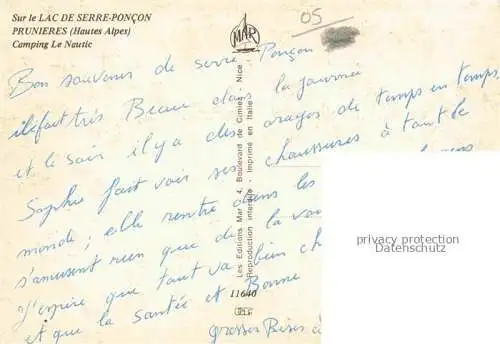 Sur le LAC DE SERRE-PONÇON
PRUNIERES (Hautes Alpes)
Camping Le Nautic
MAR
05
Bon souvenir de Serre Ponçon
il fait très Beau dans la journée
et le soir il y a des orages de temps en temps,
Sophie fait voir ses chaussures à tout le
monde ; elle rentre dans les
s'amusent rien que de la voi
J'espère que tout va bien ch
et que la Santée et Bonne
Grosses Bises à
Les Editions Mar - 4, Boulevard de Cimiez - Nice
Reproduction interdite - Imprimé en Italie
11640
privacy protection
Datenschutz